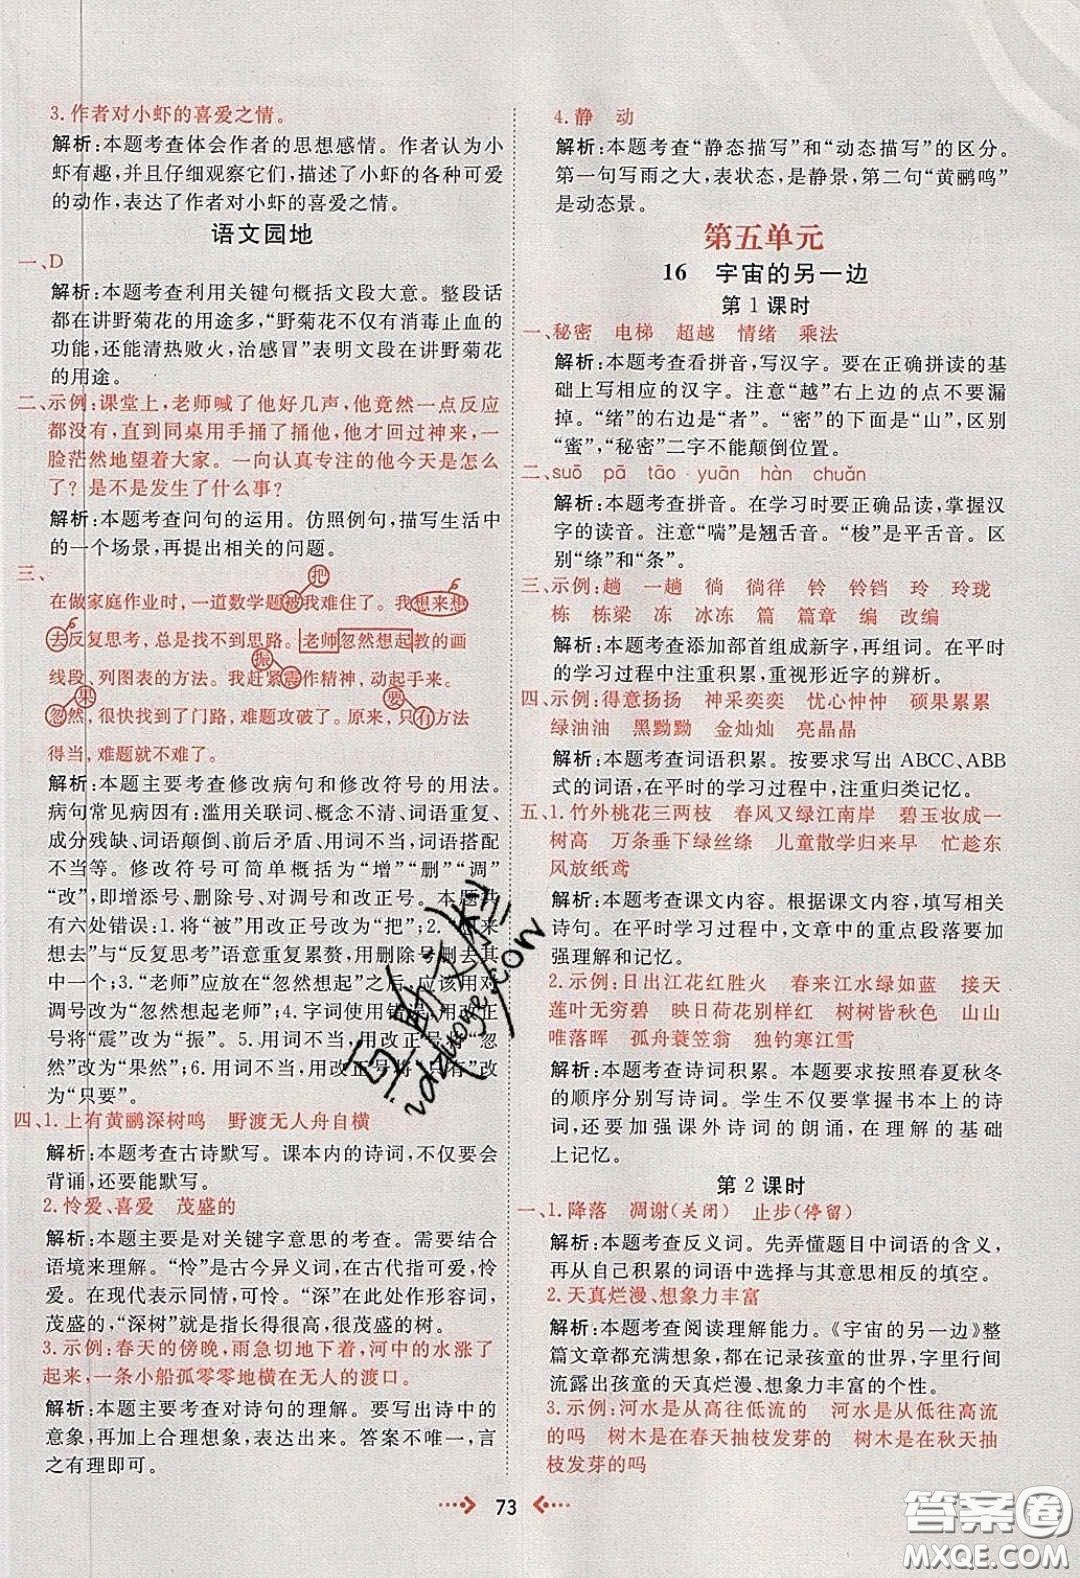 3. 作者对小虾的喜爱之情。
解析:本题考查体会作者的思想感情。作者认为小
虾有趣,并且仔细观察它们,描述了小虾的各种可爱
的动作,表达了作者对小虾的喜爱之情。
语文园地
一、D
解析:本题考查利用关键句概括文段大意。整段话
都在讲野菊花的用途多,“野菊花不仅有消毒止血的
功能,还能清热败火,治感冒”表明文段在讲野菊花
的用途。
二、示例:课堂上,老师喊了他好几声,他竟然一点反应
都没有,直到同桌用手捅了捅他,他才回过神来,一
脸茫然地望着大家。一向认真专注的他今天是怎么
了?是不是发生了什么事?
解析:本题考查问句的运用。仿照例句,描写生活中
的一个场景,再提出相关的问题。
三、
把
在做家庭作业时,一道数学题被我难住了。我想来想
去反复思考,总是找不到思路。老师忽然想起教的画
振
线段、列图表的方法。我赶紧震作精神,动起手来。
果 要
忽然,很快找到了门路,难题攻破了。原来,只有方法
得当,难题就不难了。
解析:本题主要考查修改病句和修改符号的用法。
病句常见病因有:滥用关联词、概念不清、词语重复、
成分残缺、词语颠倒、前后矛盾、用词不当、词语搭配
不当等。修改符号可简单概括为“增”“删”“调”
“改”,即增添号、删除号、对调号和改正号。本题共
有六处错误:1. 将“被”用改正号改为“把”;2. “想来
想去”与“反复思考”语意重复累赘,用删除号删去其
中一个;3. “老师”应放在“忽然想起”之后,应该用对
调号改为“忽然想起老师”;4. 字词使用错误,用改正
号将“震”改为“振”。5. 用词不当,用改正号将“忽
然”改为“果然”;6. 用词不当,用改正号将“只有”改
为“只要”。
四、1. 上有黄鹂深树鸣 野渡无人舟自横
解析:本题考查古诗默写。课本内的诗词,不仅要会
背诵,还要能默写。
2. 怜爱、喜爱 茂盛的
解析:本题主要是对关键字意思的考查。需要结合
语境来理解。“怜”是古今异义词,在古代指可爱,怜
爱。在现代表示同情,可怜。“深”在此处作形容词,
茂盛的,“深树”就是指长得很高,很茂盛的树。
3. 示例:春天的傍晚,雨急切地下着,河中的水涨了
起来,一条小船孤零零地横在无人的渡口。
解析:本题主要考查对诗句的理解。要写出诗中的
意象,再加上合理想象,表达出来。答案不唯一,言
之有理即可。
4. 静 动
解析:本题考查“静态描写”和“动态描写”的区分。
第一句写雨之大,表状态,是静景,第二句“黄鹂鸣”
是动态景。
第五单元
16 宇宙的另一边
第1课时
一、秘密 电梯 超越 情绪 乘法
解析:本题考查看拼音,写汉字。要在正确拼读的基
础上写相应的汉字。注意“越”右上边的点不要漏
掉。“绪”的右边是“者”。“密”的下面是“山”,区别
“蜜”,“秘密”二字不能颠倒位置。
二、suō pā tāo yuān hàn chuǎn
解析:本题考查拼音。在学习时要正确品读,掌握汉
字的读音。注意“喘”是翘舌音。“梭”是平舌音。区
别“绦”和“条”。
三、示例:趟 一趟 徜 徜徉 铃 铃铛 玲 玲珑
栋 栋梁 冻 冰冻 篇 篇章 编 改编
解析:本题考查添加部首组成新字,再组词。在平时
的学习过程中注重积累,重视形近字的辨析。
四、示例:得意扬扬 神采奕奕 忧心忡忡 硕果累累
绿油油 黑黝黝 金灿灿 亮晶晶
解析:本题考查词语积累。按要求写出 ABCC、ABB
式的词语,在平时的学习过程中,注重归类记忆。
五、1. 竹外桃花三两枝 春风又绿江南岸 碧玉妆成一
树高 万条垂下绿丝绦 儿童散学归来早 忙趁东
风放纸鸢
解析:本题考查课文内容。根据课文内容,填写相关
诗句。在平时学习过程中,文章中的重点段落要加
强理解和记忆。
2. 示例:日出江花红胜火 春来江水绿如蓝 接天
莲叶无穷碧 映日荷花别样红 树树皆秋色 山山
唯落晖 孤舟蓑笠翁 独钓寒江雪
解析:本题考查诗词积累。本题要求按照春夏秋冬
的顺序分别写诗词。学生不仅要掌握书本上的诗
词,还要加强课外诗词的朗诵,在理解的基础
上记忆。
第2课时
一、1. 降落 凋谢(关闭) 止步(停留)
解析:本题考查反义词。先弄懂题目中词语的含义,
再从自己积累的词语中选择与其意思相反的填空。
2. 天真烂漫、想象力丰富
解析:本题考查阅读理解能力。《宇宙的另一边》整
篇文章都充满想象,都在记录孩童的世界,字里行间
流露出孩童的天真烂漫、想象力丰富的个性。
3. 示例:河水是从高往低流的 河水是从低往高流
的吗 树木是在春天抽枝发芽的 树木是在秋天抽
枝发芽的吗
73
答案圈
MXQE.COM